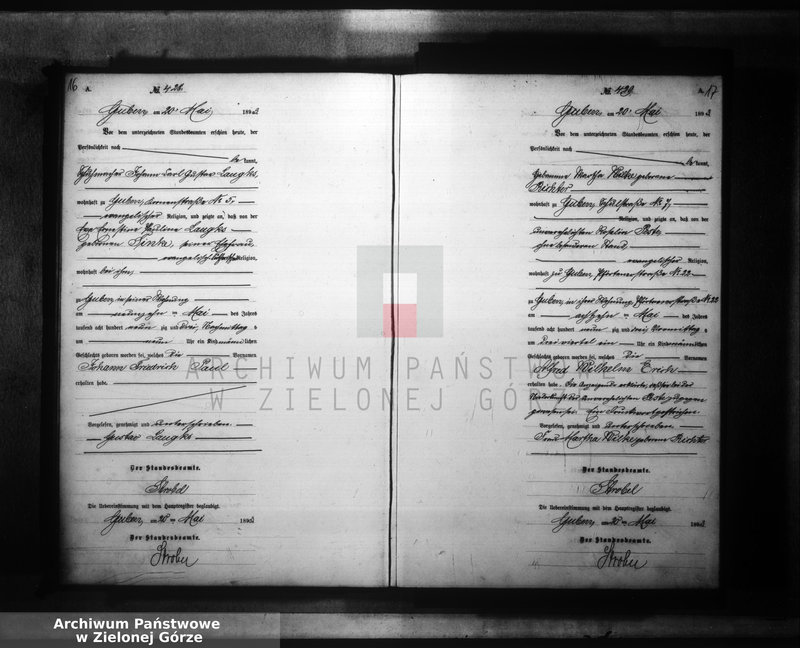 16
A.
№ 428.
Guben, am 20. Mai 189
Vor dem unterzeichneten Standesbeamten erschien heute, der
Persönlichkeit nach
be kannt,
Johann Carl Gustav Laugks,
wohnhaft zu Guben, № 5,
evangelischer Religion, und zeigte an, daß von der
Ernestine Pauline Laugks
geborenen seiner Ehefrau,
evangelischer Religion,
wohnhaft bei ihm,
zu Guben in seiner Wohnung
am neunzehn ten Mai des Jahres
tausend acht hundert neun zig und drei Nachmittag s
um neun Uhr ein Kind männlichen
Geschlechts geboren worden sei, welches die Vornamen
Johann Friedrich Paul
erhalten habe.
Vorgelesen, genehmigt und unterschrieben
Gustav Laugks
Der Standesbeamte.
Strobel
Die Uebereinstimmung mit dem Hauptregister beglaubigt.
Guben, am 20 ten Mai 189
Der Standesbeamte.
Strobel
A. 17
№ 429.
Guben, am 20. Mai 189
Vor dem unterzeichneten Standesbeamten erschien heute, der
Persönlichkeit nach
be kannt,
Hebamme Martha Wilke geborene
Richter
wohnhaft zu Guben, Schulstraße № 7,
Religion, und zeigte an, daß von der
unverehelichten
ohne besonderen Stand
evangelischer Religion,
wohnhaft zu Guben, № 22
zu Guben in ihrer Wohnung, № 22
am achtzehn ten Mai des Jahres
tausend acht hundert neun zig und drei Vormittag s
um drei viertel ein Uhr ein Kind männlichen
Geschlechts geboren worden sei, welches die Vornamen
Alfred Wilhelm Erich
erhalten habe. Die Anzeigende erklärte, daß sie bei der
Niederkunft der unverehelichten zugegen
gewesen sei. Ein Druckwort gestrichen
Vorgelesen, genehmigt und unterschrieben
Frau Martha Wilke geborene Richter
Der Standesbeamte.
Strobel
Die Uebereinstimmung mit dem Hauptregister beglaubigt.
Guben, am 20 ten Mai 189
Der Standesbeamte.
Strobel
ARCHIWUM PAŃSTWOWE
W ZIELONEJ GÓRZE
Archiwum Państwowe
w Zielonej Górze